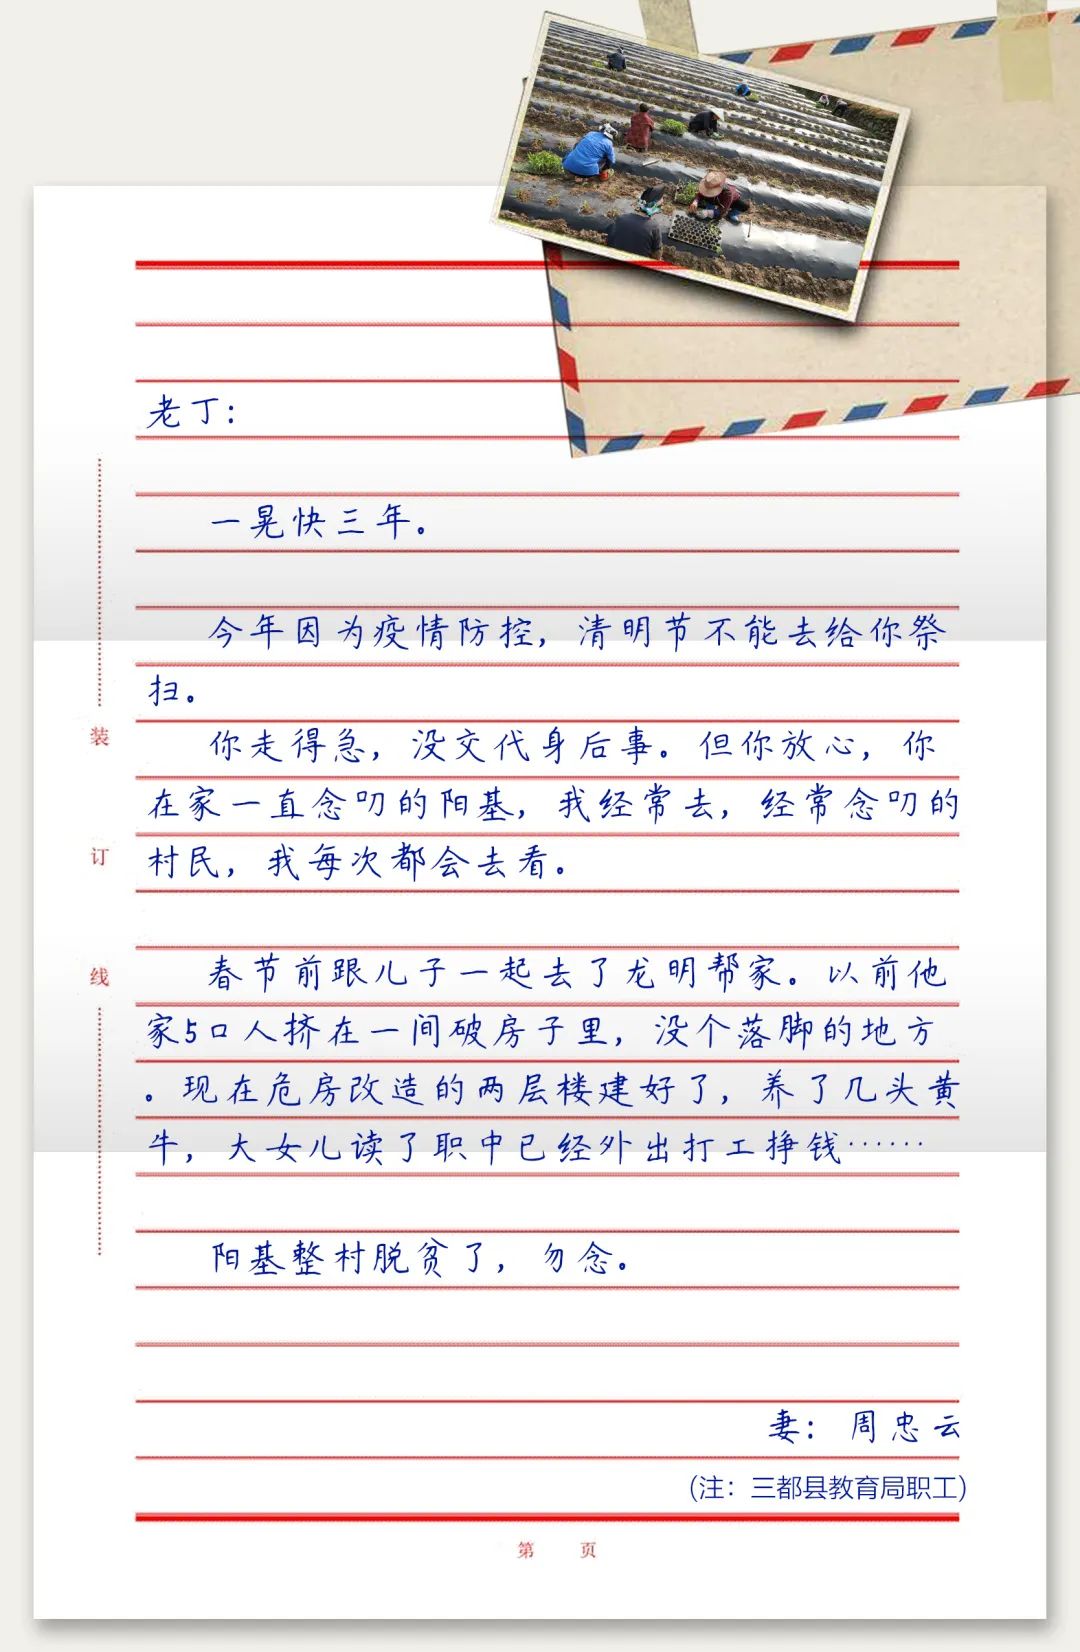 老丁：
一晃快三年。
今年因为疫情防控，清明节不能去给你祭
扫。
你走得急，没交代身后事。但你放心，你
在家一直念叨的阳基，我经常去，经常念叨的
村民，我每次都会去看。
春节前跟儿子一起去了龙明帮家。以前他
家5口人挤在一间破房子里，没个落脚的地方
。现在危房改造的两层楼建好了，养了几头黄
牛，大女儿读了职中已经外出打工挣钱……
阳基整村脱贫了，勿念。
妻：周忠云
(注：三都县教育局职工)
装
订
线
第 页